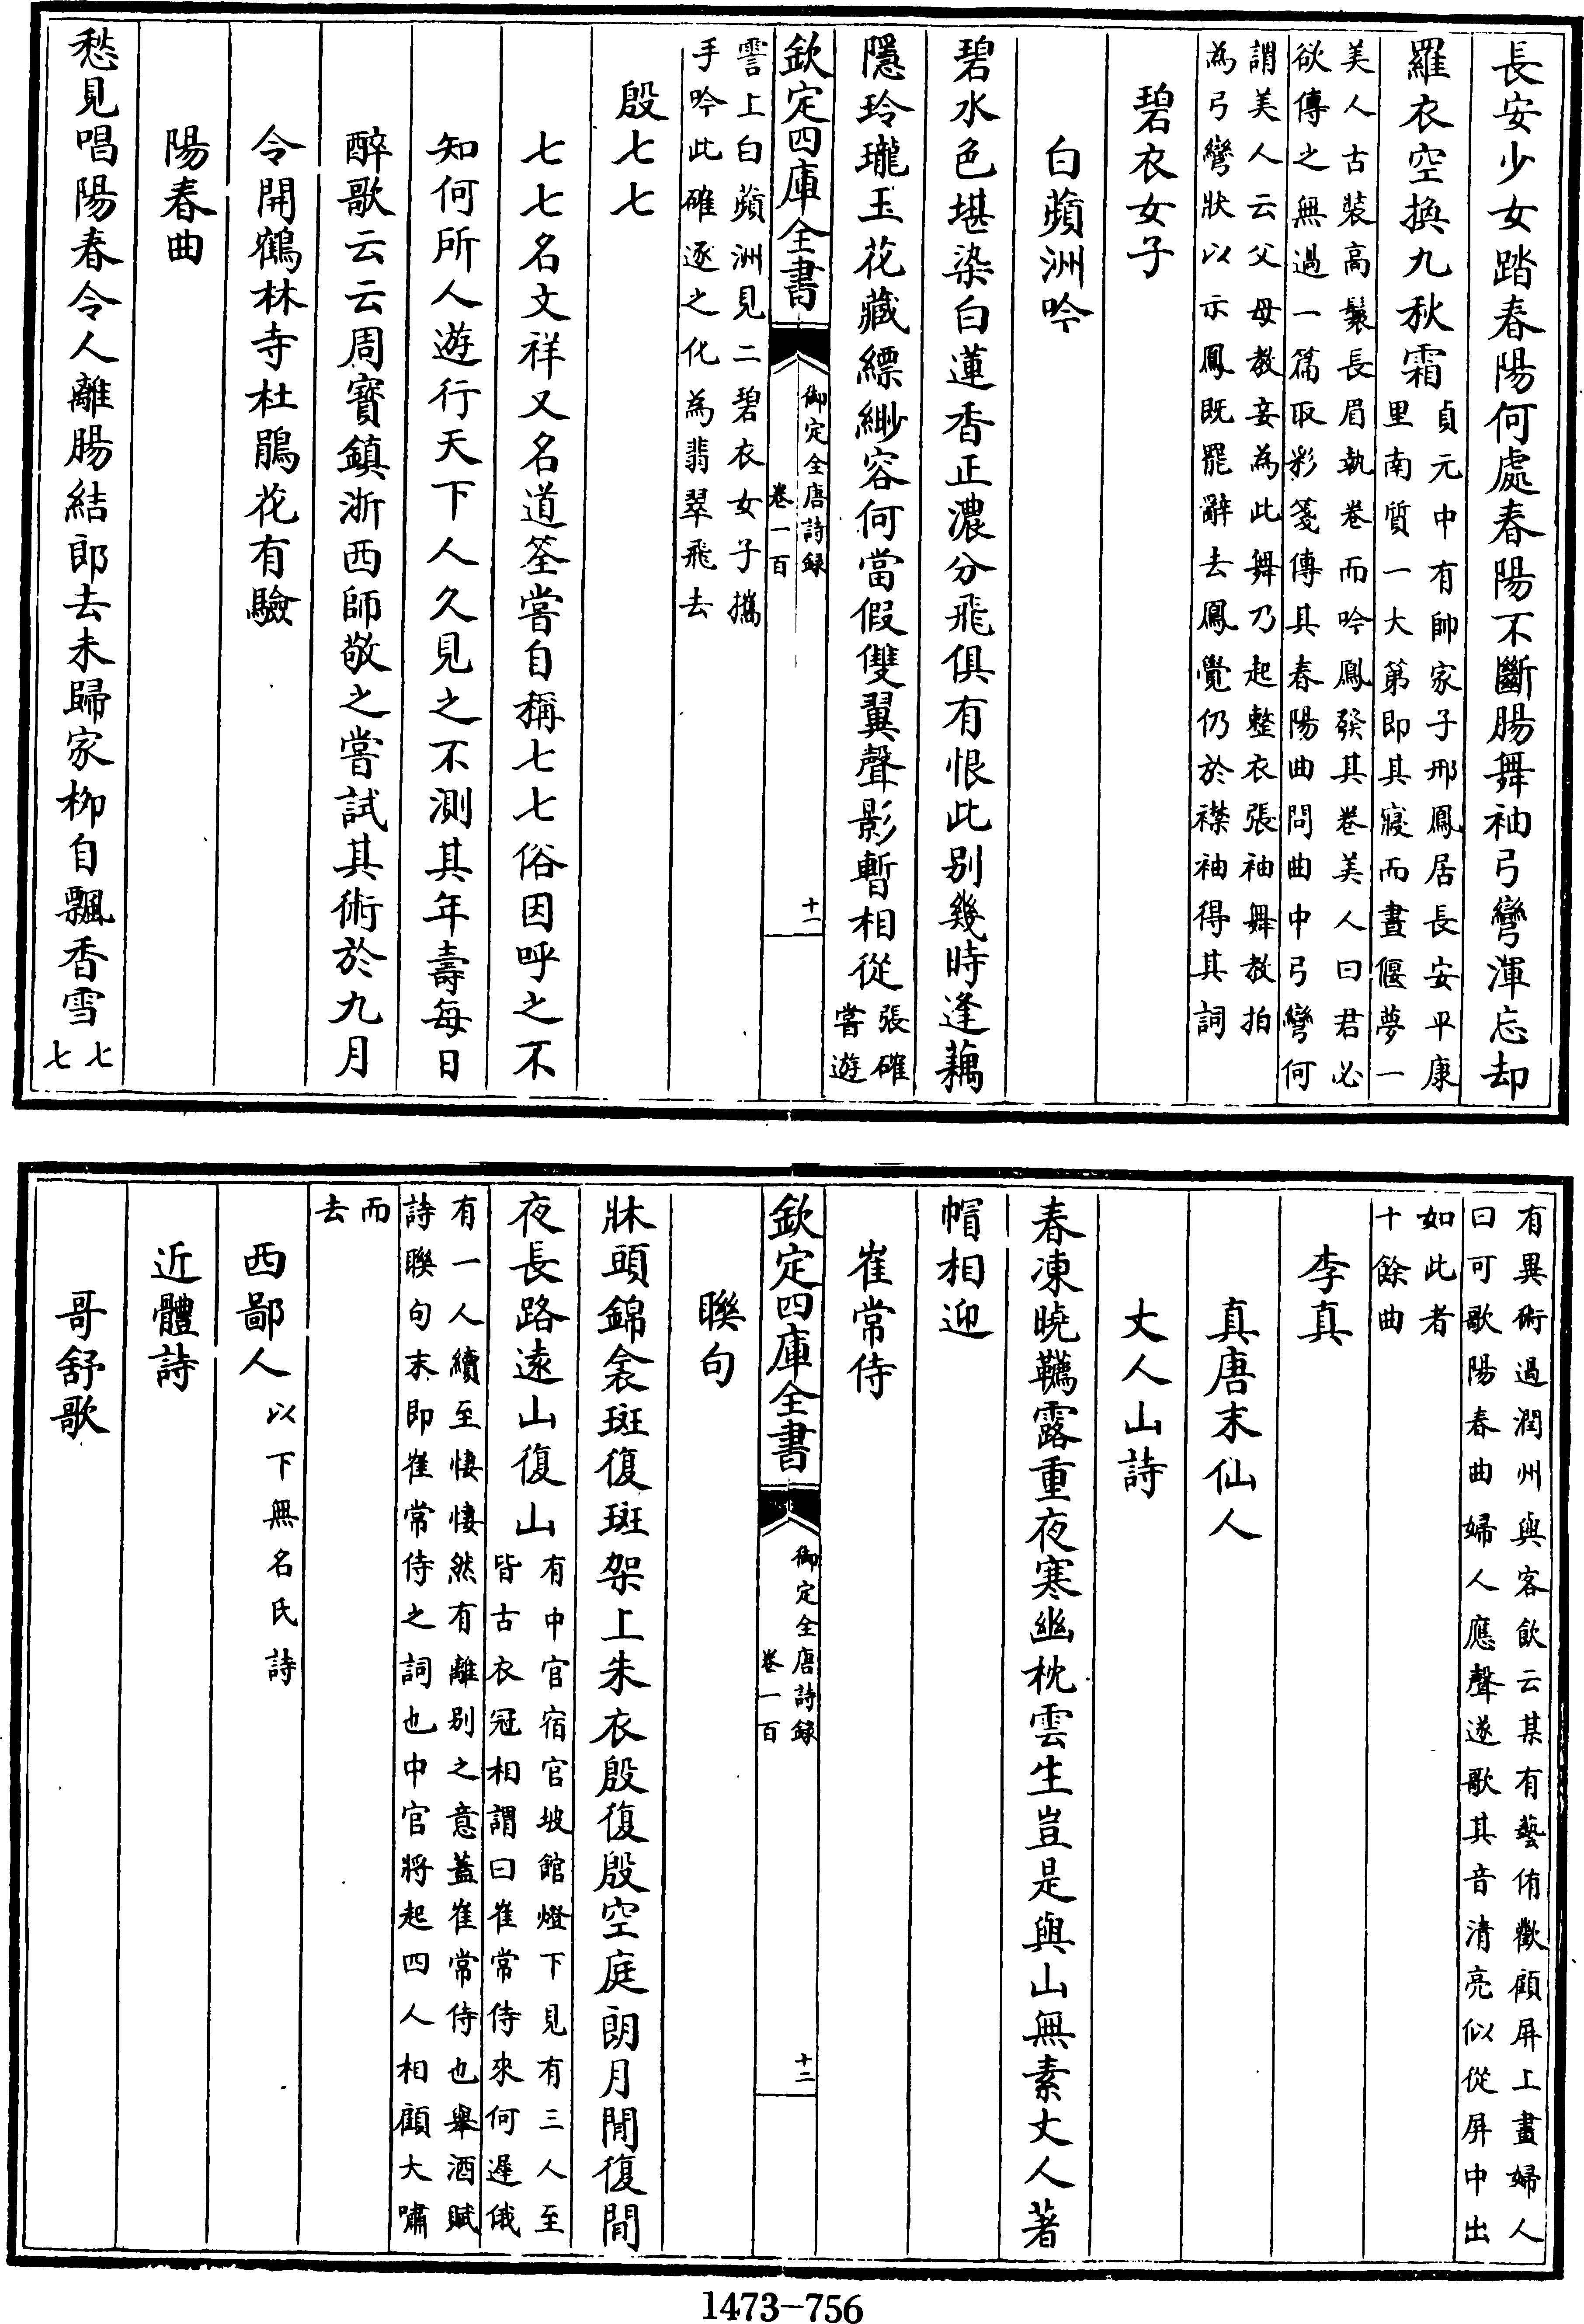 長安少女踏春陽何處春陽不斷腸舞袖弓彎渾忘却
羅衣空換九秋霜
貞元中有帥家子邢鳳居長安平康
里南質一大第即其寢而晝偃夢一
美人古裝高鬟長眉執卷而吟鳳發其卷美人曰君必
欲傳之無過一篇取彩箋傳其春陽曲問曲中弓彎何
謂美人云父母教妾為此舞乃起整衣張袖舞教拍
為弓彎狀以示鳳既罷辭去鳳覺仍於襟袖得其詞
碧衣女子
白蘋洲吟
碧水色堪染白蓮香正濃分飛俱有恨此别幾時逢藕
隱玲瓏玉花藏縹緲容何當假雙翼聲影暫相從
張確
嘗遊
欽定四庫全書
御定全唐詩録
卷一百
十一
霅上白蘋洲見二碧衣女子攜
手吟此確逐之化為翡翠飛去
殷七七
七七名文祥又名道筌嘗自稱七七俗因呼之不
知何所人遊行天下人久見之不測其年壽每日
醉歌云云周寶鎮浙西師敬之嘗試其術於九月
令開鶴林寺杜鵑花有驗
陽春曲
愁見唱陽春令人離腸結郎去未歸家栁自飄香雪
七
七
有異術過潤州與客飲云某有藝侑歡顧屏上畫婦人
曰可歌陽春曲婦人應聲遂歌其音清亮似從屏中出
如此者
十餘曲
李真
真唐末仙人
丈人山詩
春凍曉韉露重夜寒幽枕雲生豈是與山無素丈人著
帽相迎
崔常侍
欽定四庫全書
御定全唐詩録
卷一百
十二
聨句
牀頭錦衾斑復斑架上朱衣殷復殷空庭朗月閒復閒
夜長路遠山復山
有中官宿官坡館燈下見有三人至
皆古衣冠相謂曰崔常侍來何遲俄
有一人續至悽悽然有離别之意蓋崔常侍也舉酒賦
詩聨句末即崔常侍之詞也中官將起四人相顧大嘯
而
去
西鄙人
以下無名氏詩
近體詩
哥舒歌
1473-756